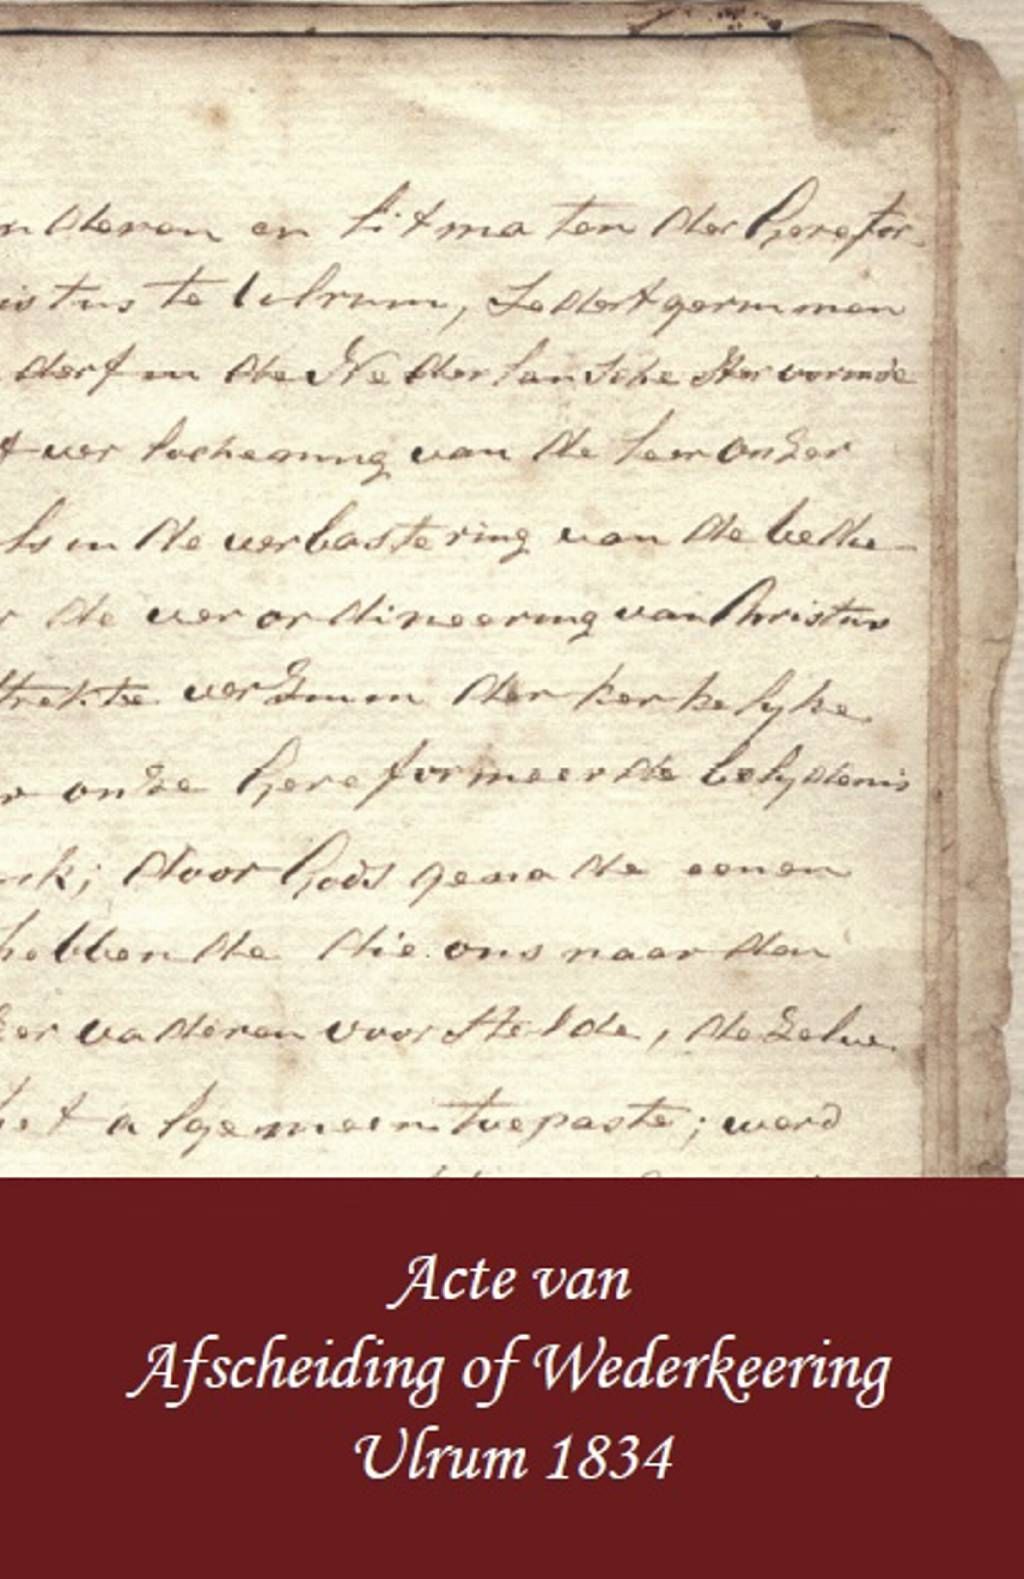 nderen en Litmaten der Gerefor-
istus te Ulrum, Sedert geruimen
derf in de Nederlansche Hervormde
t verlochening van de leer onzer
ls in de verbastering van de bedie-
r de verordineering van Christus
trekte verzuim der kerkelyke
r onze Gereformeerde belydenis
nk; door Gods genade eenen
hebbende die ons naar den
zer vaderen voorstelde, dezelve
het algemeen toepaste; werd
Acte van
Afscheiding of Wederkeering
Ulrum 1834